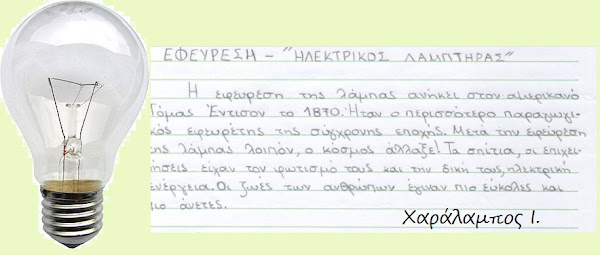 ΕΦΕΥΡΕΣΗ - "ΗΛΕΚΤΡΙΚΟΣ ΛΑΜΠΤΗΡΑΣ"
Η εφεύρεση της λάμπας ανήκει στον αμερικανό
Τόμας Έντισον το 1870. Ήταν ο περισσότερο παραγωγι-
κός εφευρέτης της σύγχρονης εποχής. Μετά την εφεύρεση
της λάμπας λοιπόν, ο κόσμος άλλαξε! Τα σπίτια, οι επιχει-
ρήσεις είχαν τον φωτισμό τους και την δική τους, ηλεκτρική
ενέργεια. Οι ζωές των ανθρώπων έγιναν πιο εύκολες και
πιο άνετες.
Χαράλαμπος Ι.